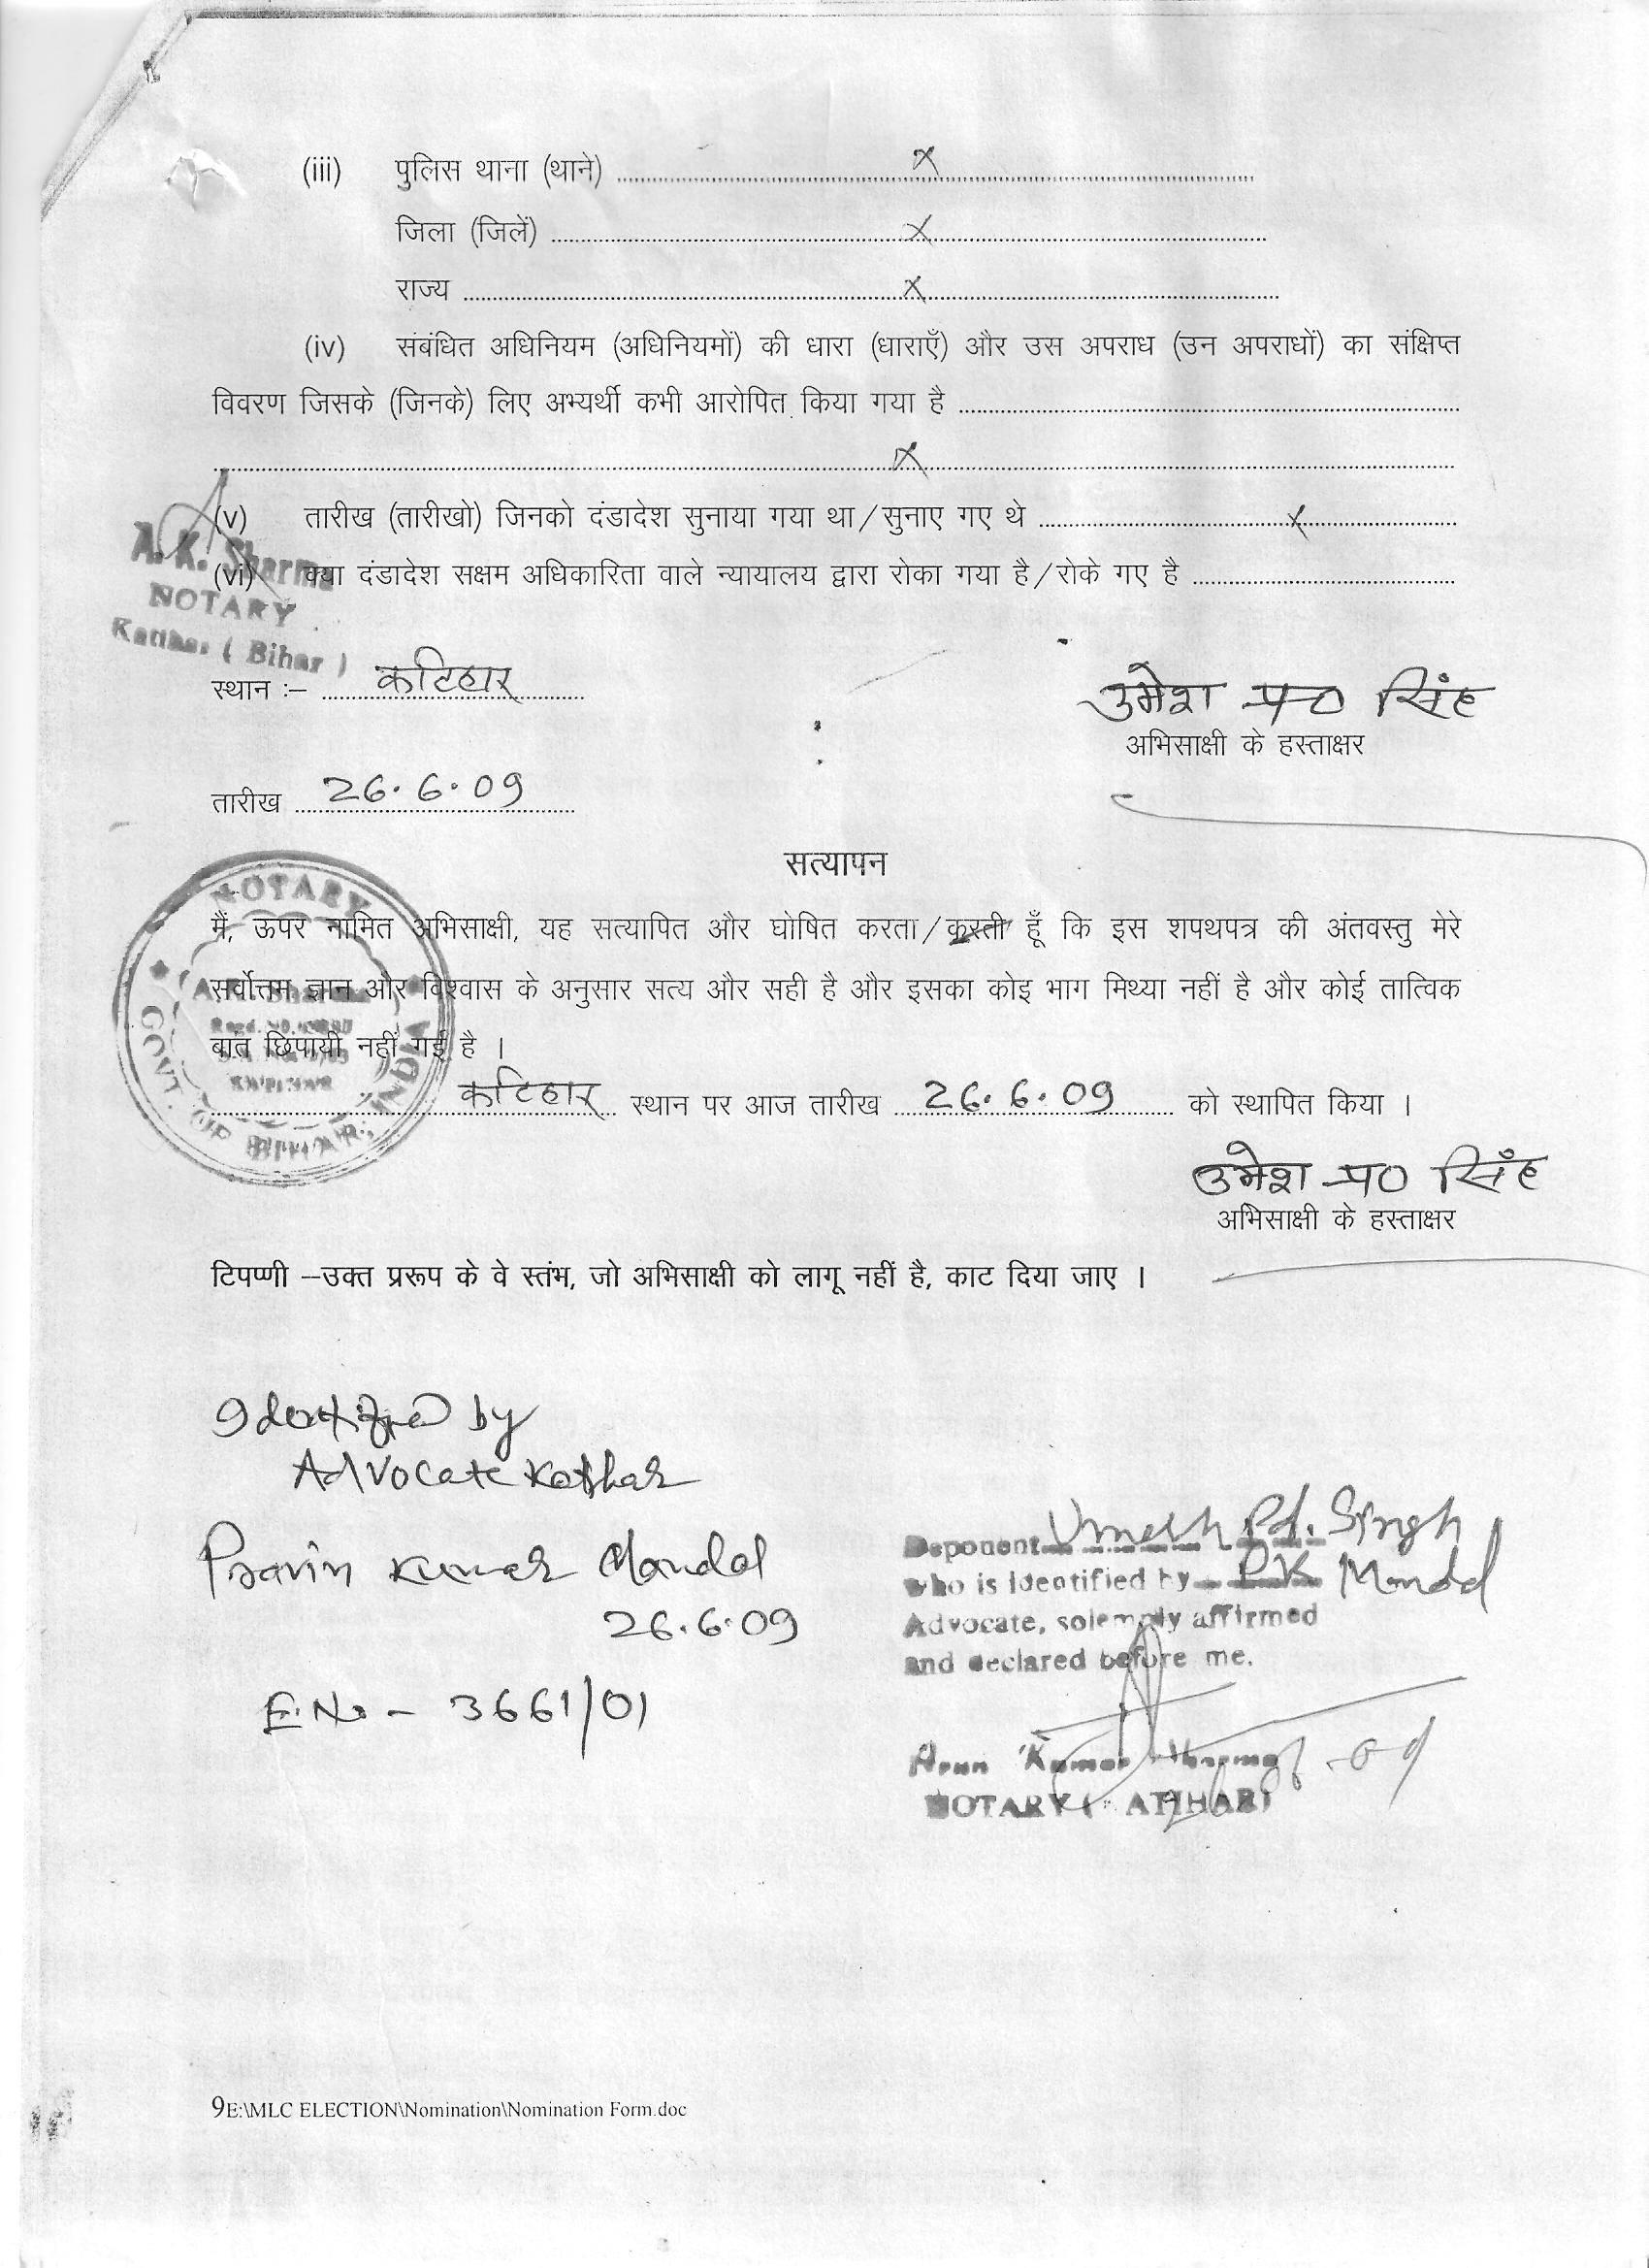 (iii) पुलिस थाना (थाने) .......... X ..........
जिला (जिलें) .......... X ..........
राज्य .......... X ..........
(iv) संबंधित अधिनियम (अधिनियमों) की धारा (धाराएँ) और उस अपराध (उन अपराधों) का संक्षिप्त
विवरण जिसके (जिनके) लिए अभ्यर्थी कभी आरोपित किया गया है ..........
.......... X ..........
(v) तारीख (तारीखो) जिनको दंडादेश सुनाया गया था/सुनाए गए थे .......... X ..........
A. K. Sharma
(vi) क्या दंडादेश सक्षम अधिकारिता वाले न्यायालय द्वारा रोका गया है/रोके गए है ..........
NOTARY
Katihar ( Bihar )
स्थान :– कटिहार
उमेश प्र० सिंह
अभिसाक्षी के हस्ताक्षर
तारीख 26.6.09
सत्यापन
मैं, ऊपर नामित अभिसाक्षी, यह सत्यापित और घोषित करता/करती हूँ कि इस शपथपत्र की अंतवस्तु मेरे
सर्वोत्तम ज्ञान और विश्वास के अनुसार सत्य और सही है और इसका कोइ भाग मिथ्या नहीं है और कोई तात्विक
बात छिपायी नहीं गई है ।
कटिहार स्थान पर आज तारीख 26.6.09 को स्थापित किया ।
NOTARY
A.K. Sharma
GOVT. OF BIHAR, INDIA
उमेश प्र० सिंह
अभिसाक्षी के हस्ताक्षर
टिपण्णी –उक्त प्ररूप के वे स्तंभ, जो अभिसाक्षी को लागू नहीं है, काट दिया जाए ।
Identified by
Advocate Katihar
Pravin Kumar Mandal
26.6.09
E.No - 3661/01
Deponent Umesh Pd. Singh
who is identified by P.K Mandal
Advocate, solemnly affirmed
and declared before me.
Arun Kumar Sharma
NOTARY (KATIHAR)
9E:\MLC ELECTION\Nomination\Nomination Form.doc